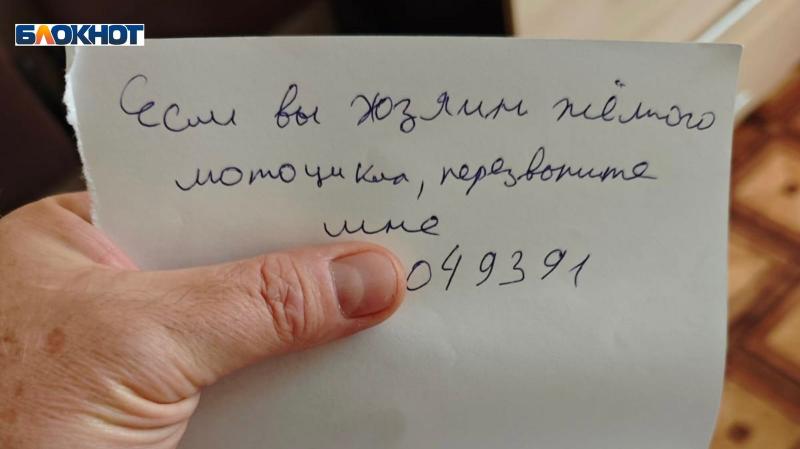 БЛОКНОТ
Если вы хозяин жёлтого
мотоцикла, перезвоните
мне
049391